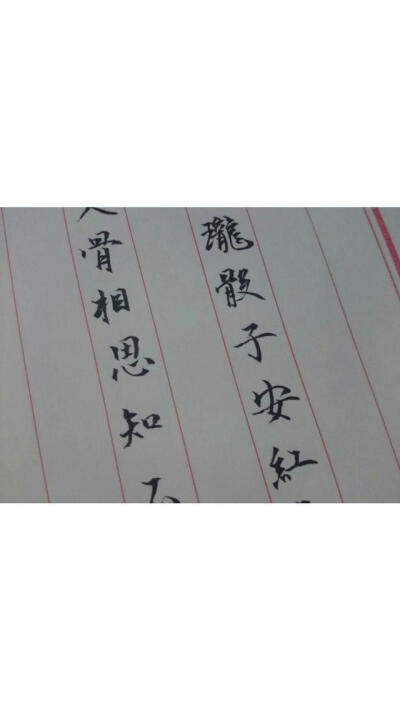 瓏骰子安紅
骨相思知